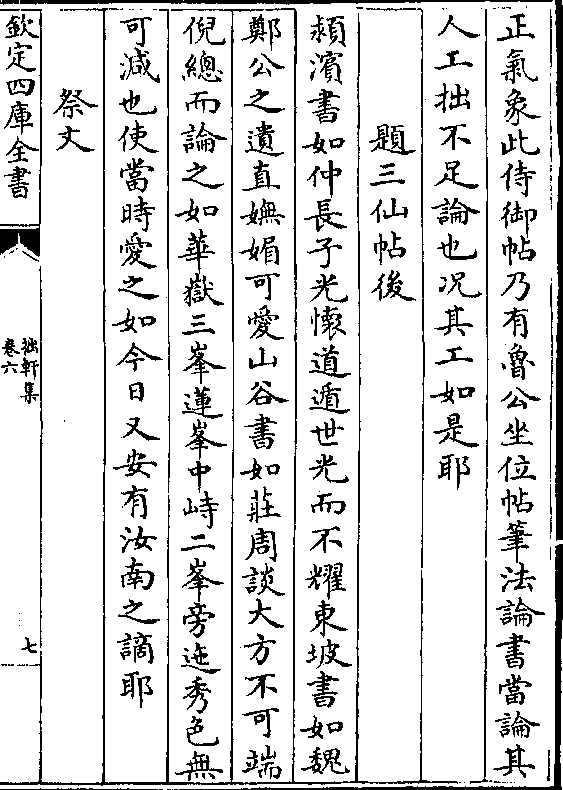 正氣象此侍御帖乃有魯公坐位帖筆法論書當論其
人工拙不足論也况其工如是耶
題三仙帖後
潁濱書如仲長子光懷道遁世光而不耀東坡書如魏
鄭公之遺直嫵媚可愛山谷書如莊周談大方不可端
倪總而論之如華嶽三峯蓮峯中峙二峯旁迤秀色無
可減也使當時愛之如今日又安有汝南之謫耶
祭文
欽定四庫全書
拙軒集
卷六
七